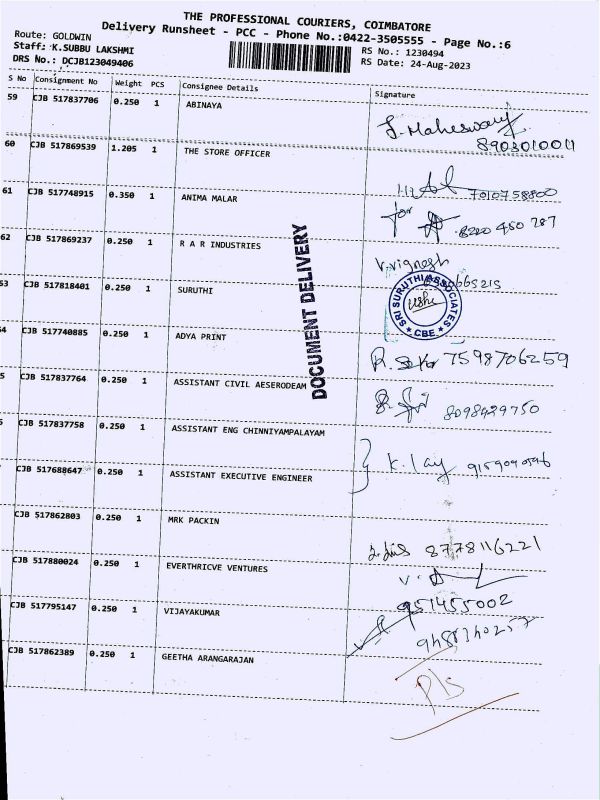 THE PROFESSIONAL COURIERS, COIMBATORE
Delivery Runsheet - PCC - Phone No.:0422-3505555 - Page No.:6
Route: GOLDWIN
Staff: K.SUBBU LAKSHMI
DRS No.: DCJB123049406
RS No.: 1230494
RS Date: 24-Aug-2023
S No Consignment No Weight PCS Consignee Details Signature
59 CJB 517837706 0.250 1 ABINAYA
8903010011
60 CJB 517869539 1.205 1 THE STORE OFFICER
7010758800
61 CJB 517748915 0.350 1 ANIMA MALAR
for 8220 450 787
62 CJB 517869237 0.250 1 R A R INDUSTRIES
V.Vignesh
53 CJB 517818401 0.250 1 SURUTHI
SRI SURUTHI ASSOCIATES
* CBE *
DOCUMENT DELIVERY
54 CJB 517740885 0.250 1 ADYA PRINT
7598706259
5 CJB 517837764 0.250 1 ASSISTANT CIVIL AESERODEAM
8098429750
CJB 517837758 0.250 1 ASSISTANT ENG CHINNIYAMPALAYAM
CJB 517688647 0.250 1 ASSISTANT EXECUTIVE ENGINEER
CJB 517862803 0.250 1 MRK PACKIN
8778116221
CJB 517880024 0.250 1 EVERTHRICVE VENTURES
951455002
CJB 517795147 0.250 1 VIJAYAKUMAR
CJB 517862389 0.250 1 GEETHA ARANGARAJAN
P/s